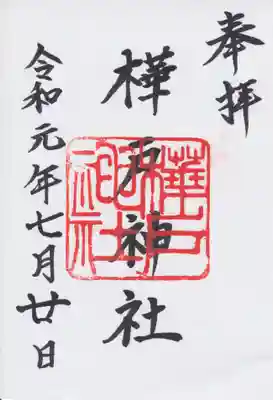 奉拝
樺戸神社
令和元年七月廿日
樺戸神社